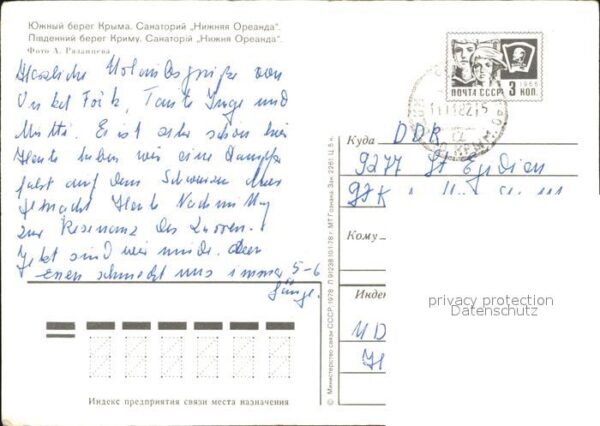 Южный берег Крыма. Санаторий „Нижняя Ореанда“.
Південний берег Криму. Санаторій „Нижня Ореанда“.
Фото А. Рязанцева
Herzliche Urlaubsgrüße von
Onkel Fritz, Tante Inge und
Mutti. Es ist sehr schön hier
Heute haben wir eine Dampfer
fahrt auf dem Schwarzen Meer
gemacht Heute Nachmittag
zur Residenz des Zaren.
Jetzt sind wir müde. das
Essen schmeckt uns immer 5-6
Gänge.
ПОЧТА СССР
1966
3 КОП.
Куда DDR
9277 St Egidien
Кому
Индекс
privacy protection
Datenschutz
Индекс предприятия связи места назначения
© Министерство связи СССР. 1978
МТ Гознака. Зак. 2261 Ц. 5 к.